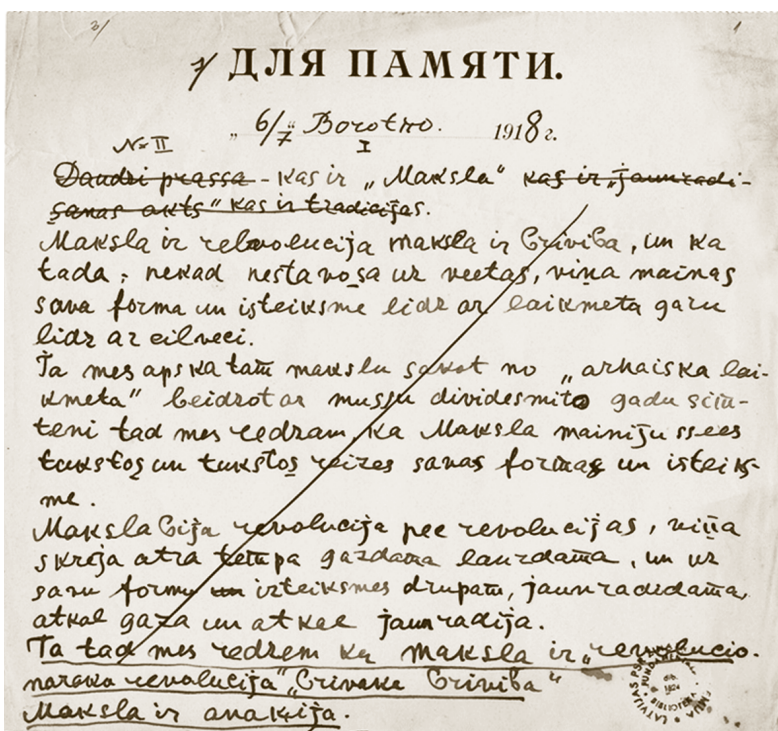 3/ 1
1/ ДЛЯ ПАМЯТИ.
„ 6/7 " Borotno. 1918 г.
№ II I
Daudzi prassa - kas ir „Maksla" kas ir „jaunradi-
şanas akts" kas ir tradicijas.
Maksla ir relvolucija maksla ir Briviba, un ka
tada; nekad nestavosa uz veetas, viņa mainas
sava forma un işteiksme lidz ar laikmeta garu
lidz ar cilveci.
Ta mes apskatam makslu sakot no „arhaiska lai-
kmeta" beidzot ar mussu dividesmito gadu sim-
teni tad mes redzam, ka Maksla mainijussees
tukstoş un tukstoş reizes savas formas un işteiks-
me.
Maksla bija revolucija pee revolucijas, viņa
skreja atra tempa gazdama lauzdama, un uz
savu formu un izteiksmes drupam, jaunradidama,
atkal gaza un atkal jaunradija.
Ta tad mes redzem ka maksla ir „revolucio-
nara revolucija" „Briveka Briviba"
Maksla ir anarkija.